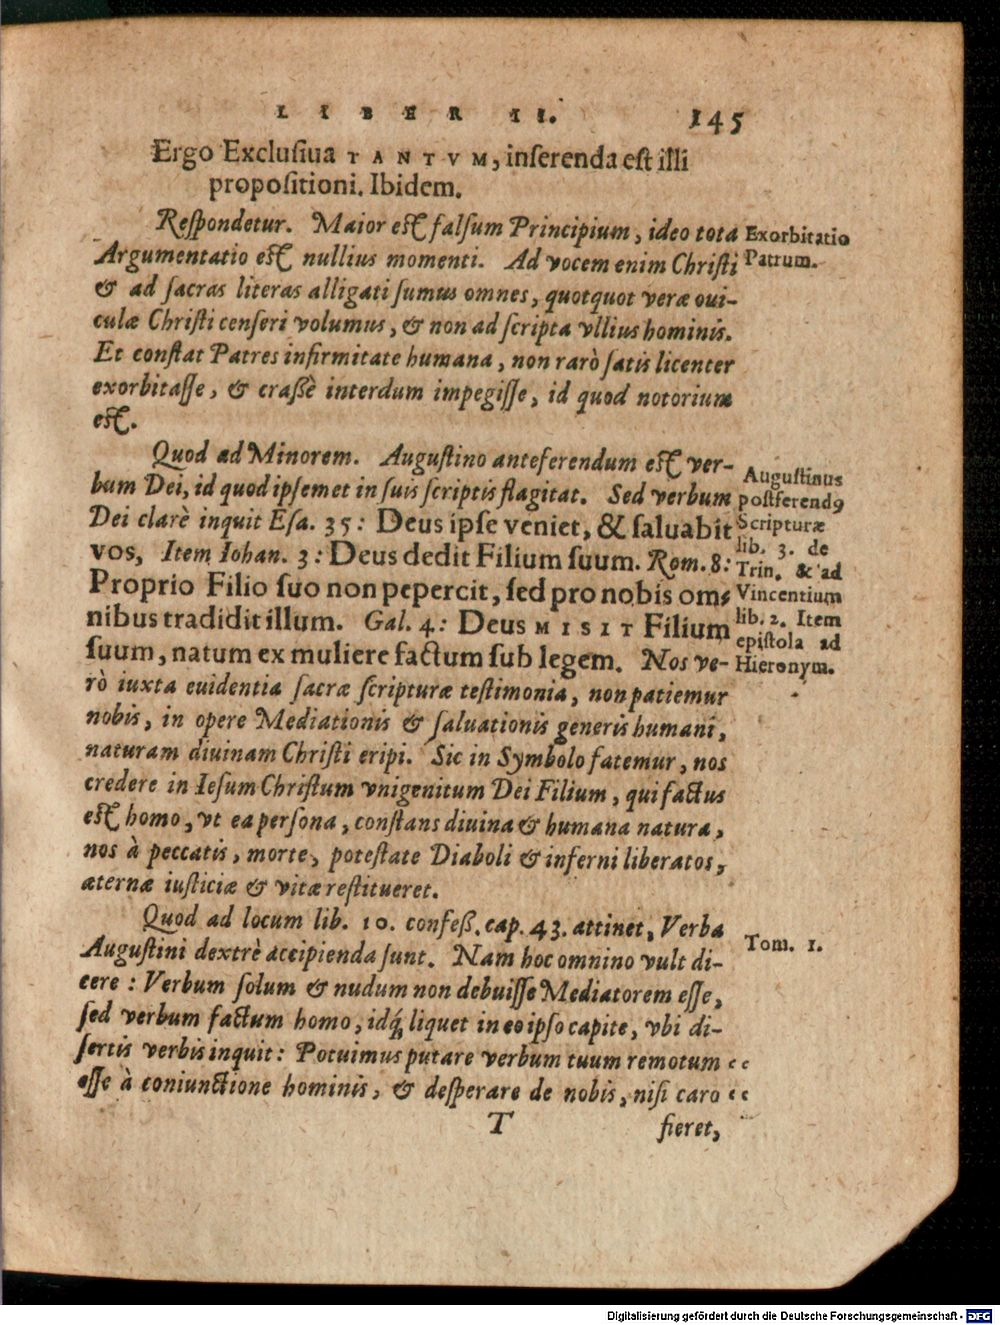 LIBER II. 145
Ergo Exclusiua TANTVM, inserenda est illi
propositioni. Ibidem.
Respondetur. Maior est falsum Principium, ideo tota
Argumentatio est nullius momenti. Ad vocem enim Christi
& ad sacras literas alligati sumus omnes, quotquot veræ oui-
culæ Christi censeri volumus, & non ad scripta vllius hominis.
Et constat Patres infirmitate humana, non rarò satis licenter
exorbitasse, & crassè interdum impegisse, id quod notorium
est.
Exorbitatio
Patrum.
Quod ad Minorem. Augustino anteferendum est ver-
bum Dei, id quod ipsemet in suis scriptis flagitat. Sed verbum
Dei clarè inquit Esa. 35: Deus ipse veniet, & saluabit
vos, Item Iohan. 3: Deus dedit Filium suum. Rom. 8:
Proprio Filio suo non pepercit, sed pro nobis om-
nibus tradidit illum. Gal. 4: Deus MISIT Filium
suum, natum ex muliere factum sub legem. Nos ve-
rò iuxta euidentia sacræ scripturæ testimonia, non patiemur
nobis, in opere Mediationis & saluationis generis humani,
naturam diuinam Christi eripi. Sic in Symbolo fatemur, nos
credere in Iesum Christum vnigenitum Dei Filium, qui factus
est homo, vt ea persona, constans diuina & humana natura,
nos à peccatis, morte, potestate Diaboli & inferni liberatos,
æternæ iusticiæ & vitæ restitueret.
Augustinus
postferendꝰ
Scripturæ
lib. 3. de
Trin. & ad
Vincentium
lib. 2. Item
epistola ad
Hieronym.
Quod ad locum lib. 10. confeß. cap. 43. attinet, Verba
Augustini dextrè accipienda sunt. Nam hoc omnino vult di-
cere: Verbum solum & nudum non debuisse Mediatorem esse,
sed verbum factum homo, idq́ liquet in eo ipso capite, vbi di-
sertis verbis inquit: Potuimus putare verbum tuum remotum
esse à coniunctione hominis, & desperare de nobis, nisi caro
Tom. 1.
T fieret,
Digitalisierung gefördert durch die Deutsche Forschungsgemeinschaft - DFG